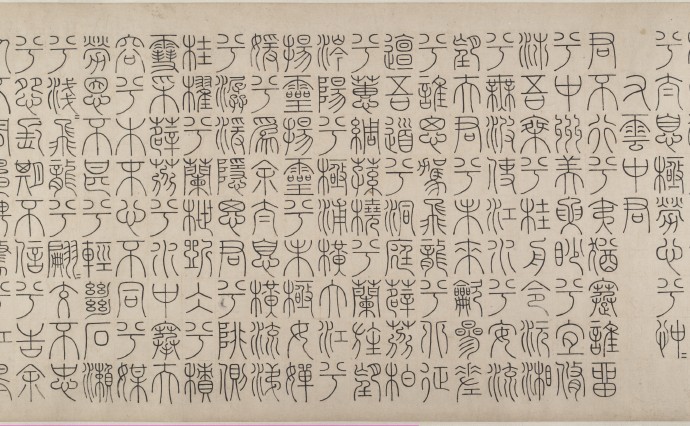 兮太息極勞心兮忡=
右雲中君
君不行兮夷猶蹇誰留
兮中洲美要眇兮宜修
沛吾乘兮桂舟令沅湘
兮無波使江水兮安流
望夫君兮未來吹參差
兮誰思駕飛龍兮北征
邅吾道兮洞庭薜荔柏
兮蕙綢蓀橈兮蘭旌望
涔陽兮極浦橫大江兮
揚靈揚靈兮未極女嬋
媛兮為余太息橫流涕
兮潺湲隱思君兮陫側
桂櫂兮蘭枻斲冰兮積
雪采薜荔兮水中搴芙
容兮木末心不同兮媒
勞恩不甚兮輕絕石瀨
兮淺=飛龍兮翩=交不忠
兮怨長期不信兮告余